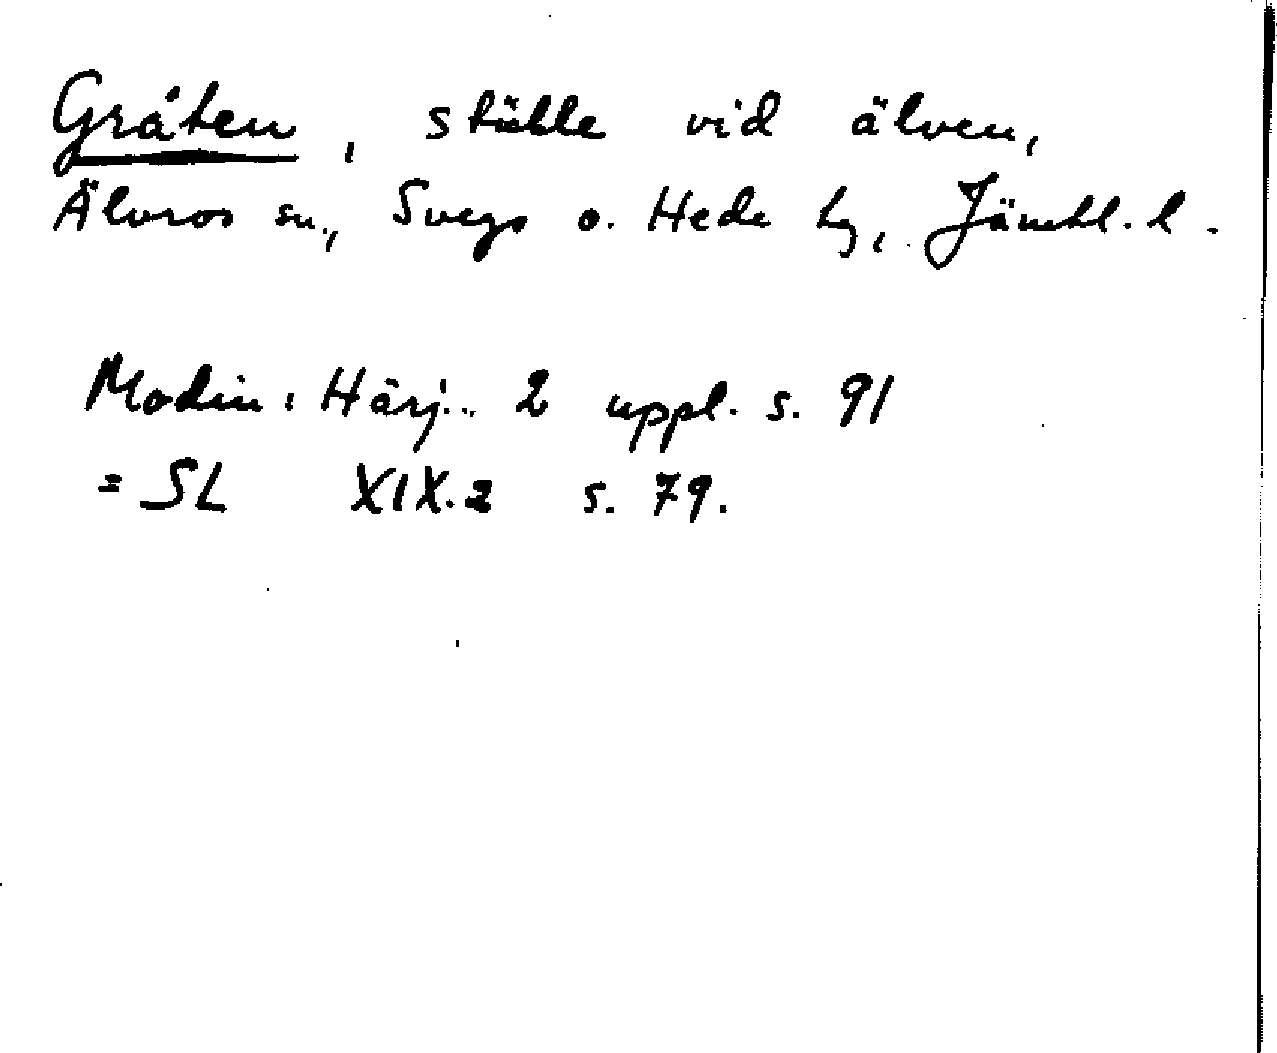 Gråten, ställe vid älven,
Älvros sn., Svegs o. Hede hg, Jämtl. l.
Modin: Härj.. 2 uppl. s. 91
= SL XIX.2 s. 79.